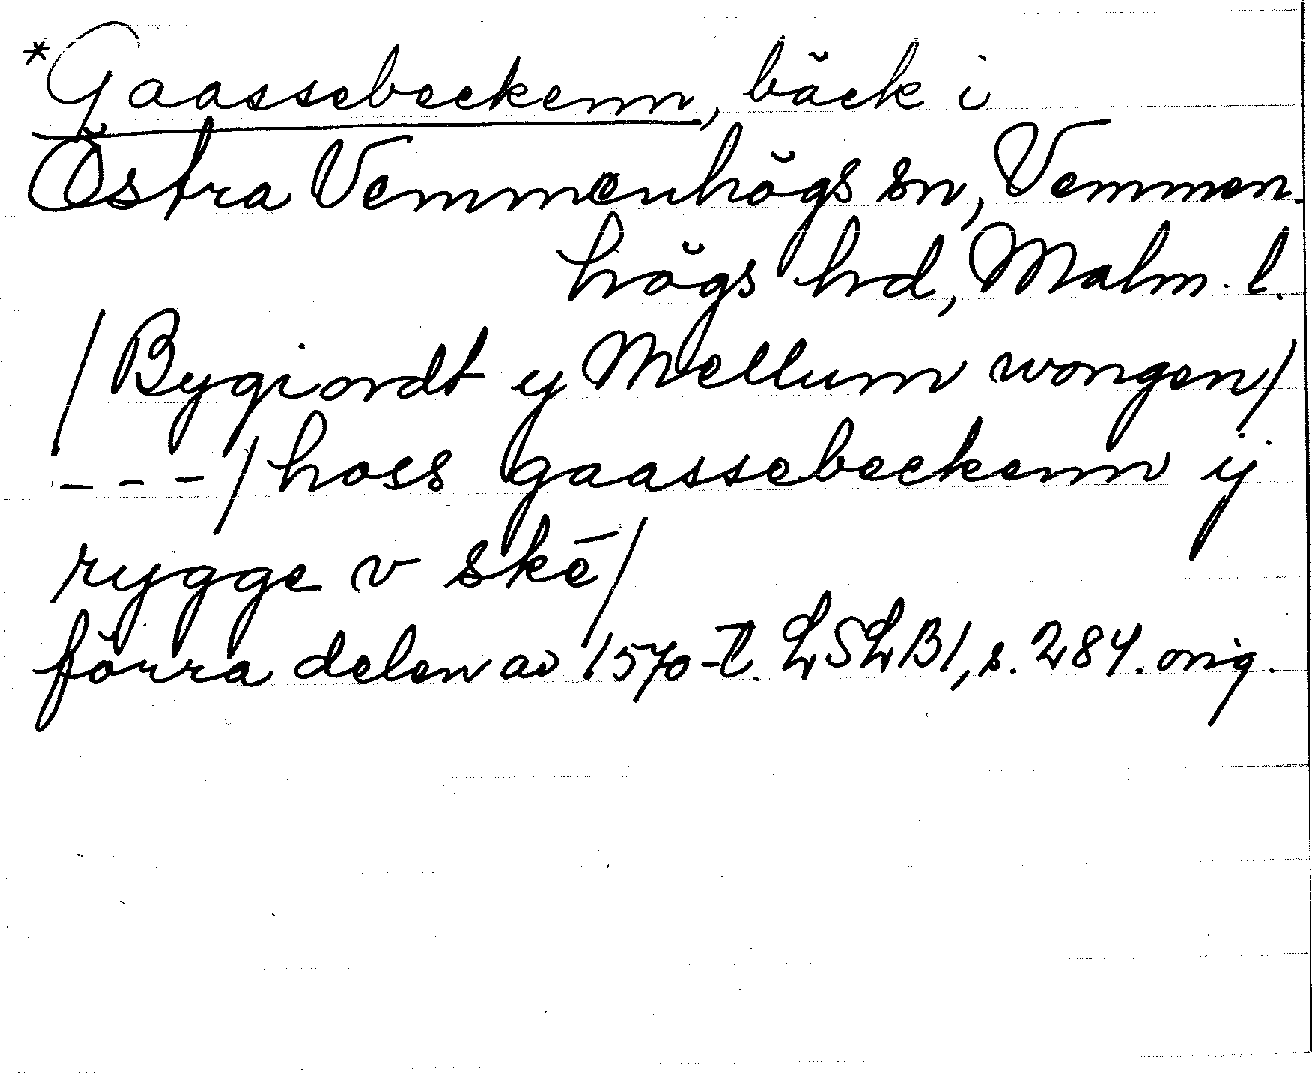 *Gaassebeckenn, bäck i
Östra Vemmenhögs sn, Vemmen-
högs hd, Malm. l.
/Bygiordt y Mellum wongen/
---/hoss gaassebeckenn ÿ
rygge v skē/
förra delen av 1570-t. LSLB1, s. 284. orig.